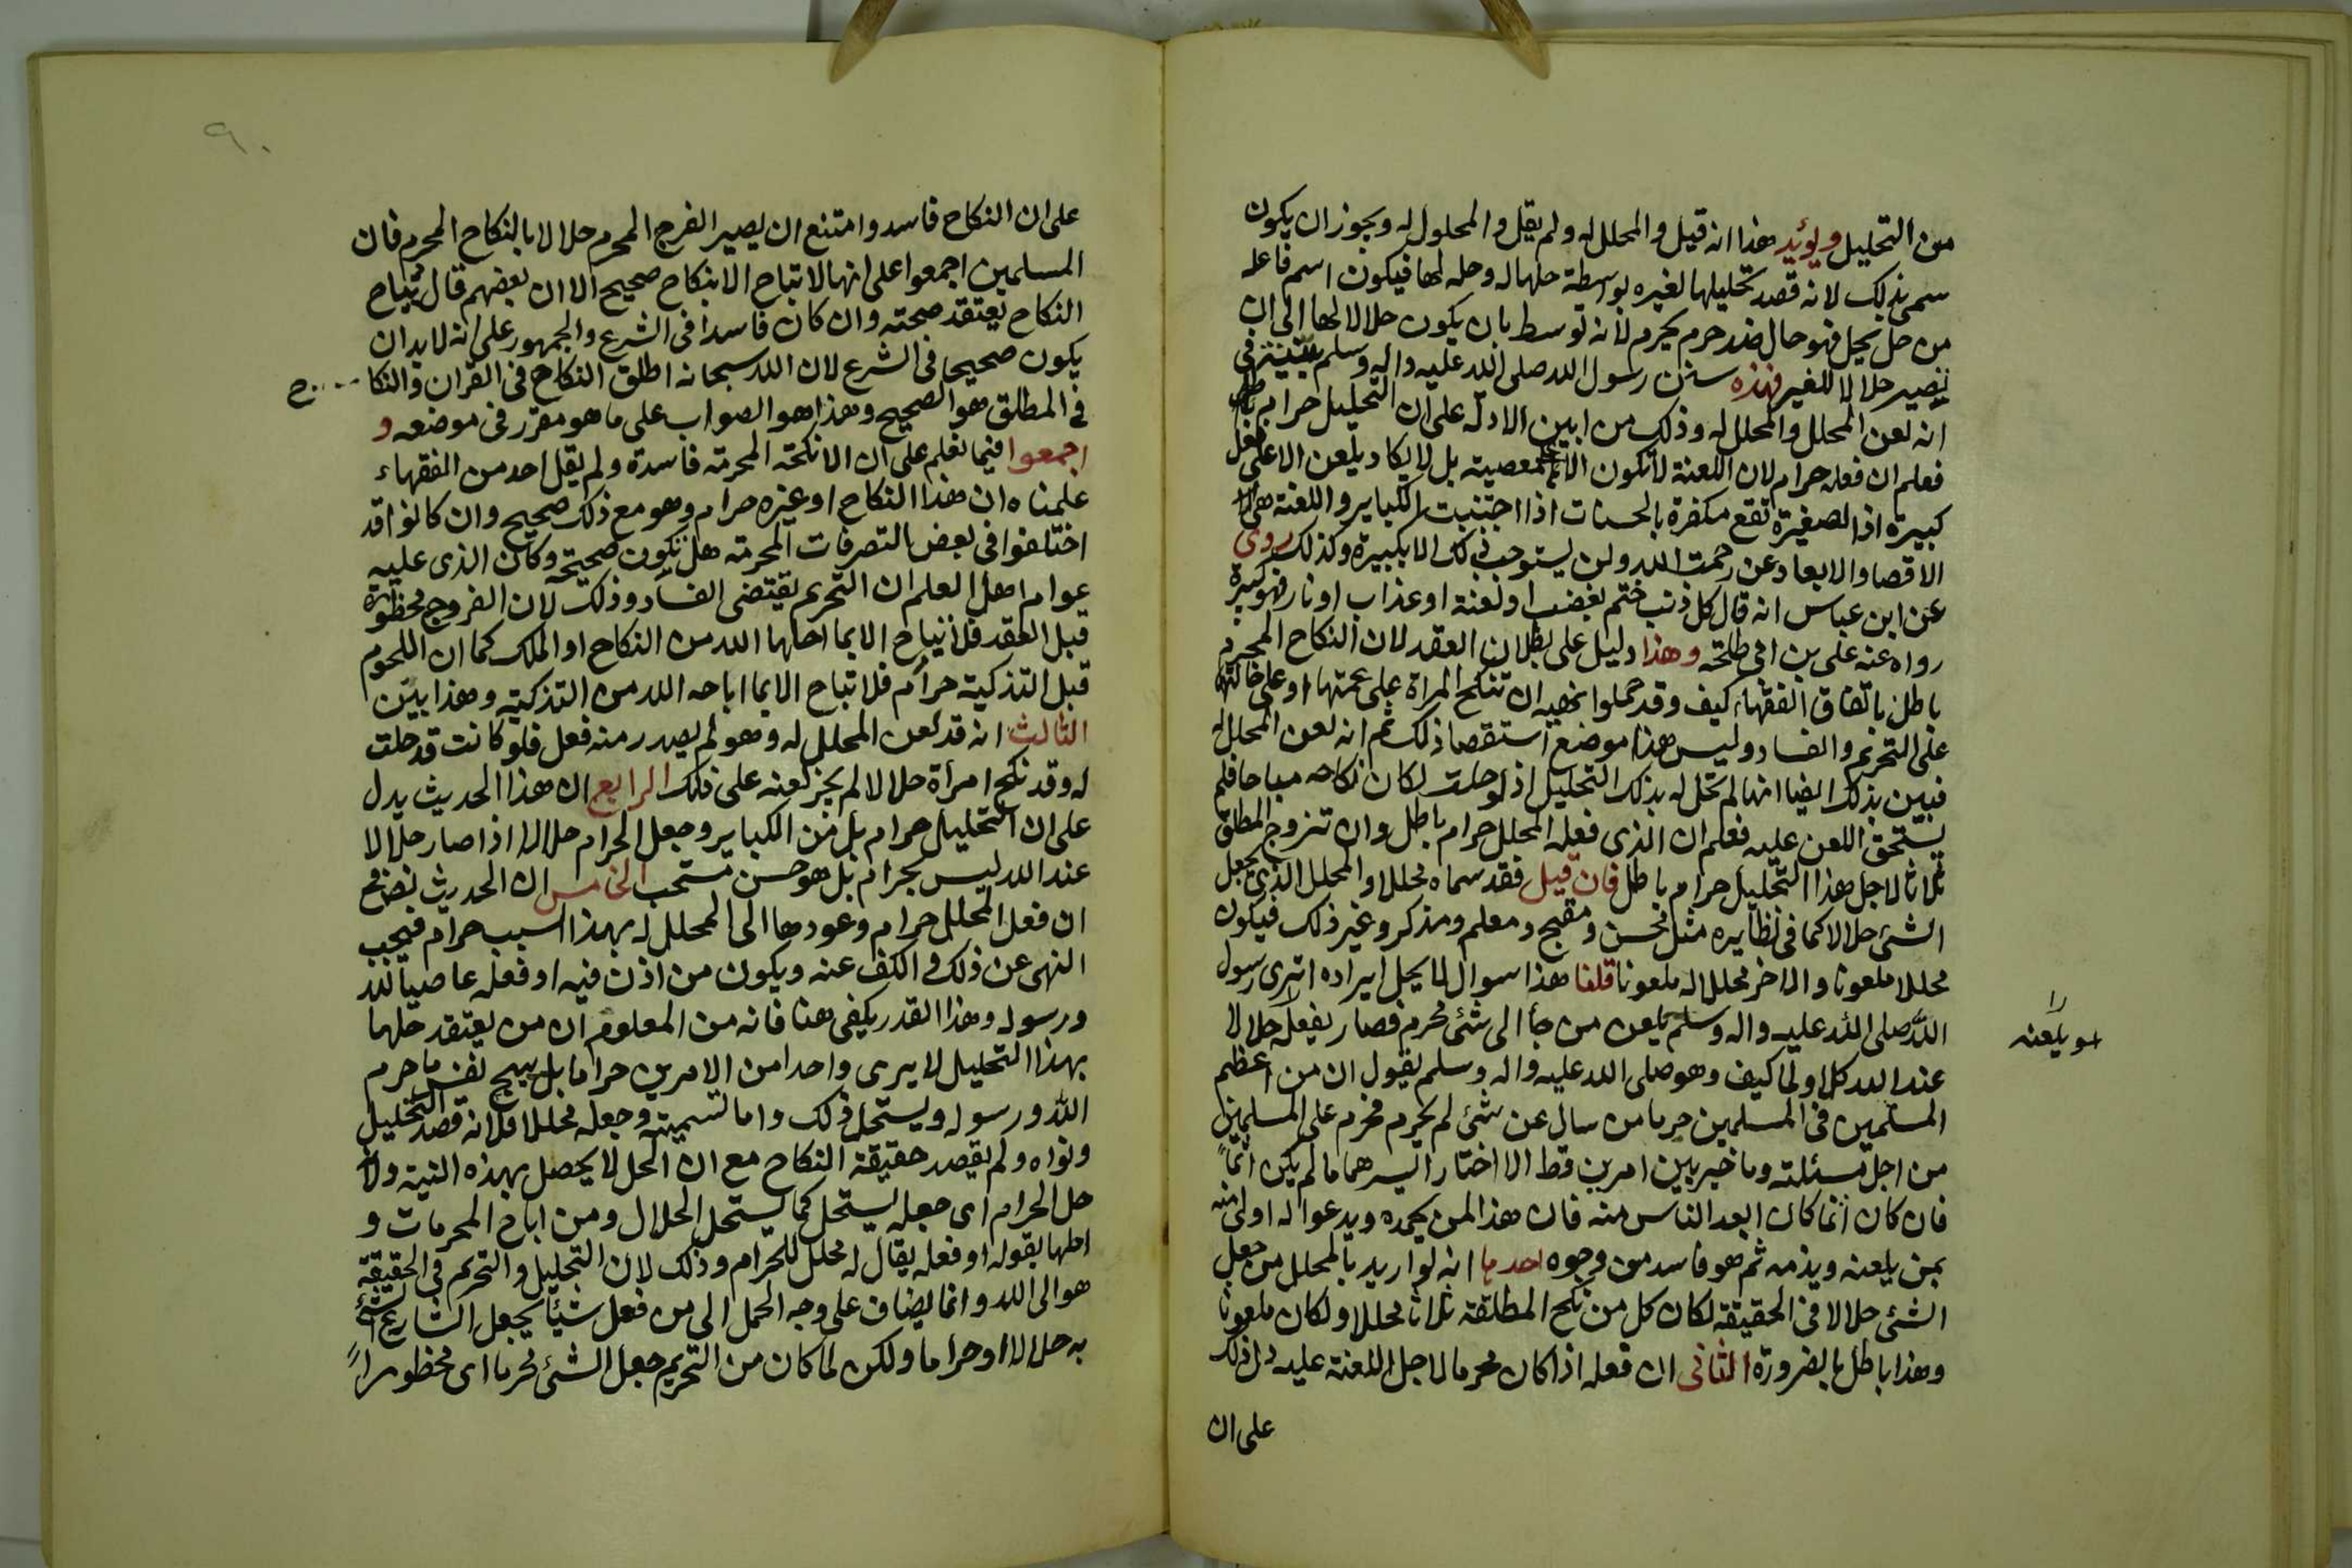 من التحليل ويؤيد هذا انه قيل والمحلل له ولم يقل والمحلول له ويجوز ان يكون
سمي بذلك لانه قصد تحليلها لغيره بواسطة حلها له وحله لها فيكون اسم فاعله
من حل يحل فهو حال ضد حرم يحرم لانه توسط بان يكون حلالا لها الى ان
تصير حلالا للغير فهذه سنن رسول الله صلى الله عليه واله وسلم بينة في
انه لعن المحلل والمحلل له وذلك من ابين الادلة على ان التحليل حرام باطل
فعلم ان فعله حرام لان اللعنة لا تكون الا على معصية بل لا يكاد يلعن الا على فعل
كبيرة اذ الصغيرة تقع مكفرة بالحسنات اذا اجتنبت الكباير واللعنة هي
الاقصا والابعاد عن رحمت الله ولن يستوجب ذلك الا بكبيرة وكذلك روى
عن ابن عباس انه قال كل ذنب ختم بغضب او لعنة او عذاب او نار فهو كبيرة
رواه عنه علي بن ابي طلحة وهذا دليل على بطلان العقد لان النكاح المحرم
باطل باتفاق الفقهاء كيف وقد حملوا نهيه ان تنكح المراة على عمتها او على خالتها
على التحريم والفساد وليس هذا موضع استقصا ذلك ثم انه لعن المحلل له
فبين بذلك ايضا انها لم تحل له بذلك التحليل اذ لو حلت لكان نكاحه مباحا فلم
يستحق اللعن عليه فعلم ان الذي فعله المحلل حرام باطل وان تزوج المطلق
ثلاثا لاجل هذا التحليل حرام باطل فان قيل فقد سماه محللا والمحلل الذي يجعل
الشئ حلالا كما في نظايره مثل محسن ومقبح ومعلم ومذكر وغير ذلك فيكون
محللا ملعونا والاخر محللا له ملعونا قلنا هذا سوال لا يحل ايراده اترى رسول
الله صلى الله عليه واله وسلم يلعن من جأ الى شئ محرم فصار يفعله حلالا
او يلعنه
عند الله كلا ولما كيف وهو صلى الله عليه واله وسلم يقول ان من اعظم
المسلمين في المسلمين جرما من سال عن شئ لم يحرم فحرم على المسلمين
من اجل مسئلته وما خير بين امرين قط الا اختار ايسرهما ما لم يكن اثماً
فان كان اثما كان ابعد الناس منه فان هذا لمن يحمده ويدعوا له اولى منه
بمن يلعنه ويذمه ثم هو فاسد من وجوه احدها انه لو اريد بالمحلل من جعل
الشئ حلالا في الحقيقة لكان كل من نكح المطلقة ثلاثا محللا ولكان ملعونا
وهذا باطل بالضرورة الثاني ان فعله اذا كان محرما لاجل اللعنة عليه دل ذلك
على ان
٩٠
على ان النكاح فاسد وامتنع ان يصير الفرج المحرم حلالا بالنكاح المحرم فان
المسلمين اجمعوا على انها لا تباح الا بنكاح صحيح الا ان بعضهم قال تباح
النكاح يعتقد صحته وان كان فاسدا في الشرع والجمهور على انه لا بد ان
يكون صحيحا في الشرع لان الله سبحانه اطلق النكاح في القران والنكا ح
في المطلق هو الصحيح وهذا هو الصواب على ما هو مقرر في موضعه و
اجمعوا فيما نعلم على ان الانكحة المحرمة فاسدة ولم يقل احد من الفقهاء
علمناه ان هذا النكاح او غيره حرام وهو مع ذلك صحيح وان كانوا قد
اختلفوا في بعض التصرفات المحرمة هل تكون صحيحة وكان الذي عليه
عوام اهل العلم ان التحريم يقتضي الفساد وذلك لان الفروج محظورة
قبل العقد فلا تباح الا بما احلها الله من النكاح او الملك كما ان اللحوم
قبل التذكية حرام فلا تباح الا بما اباحه الله من التذكية وهذا بين
الثالث انه قد لعن المحلل له وهو لم يصدر منه فعل فلو كانت قد حلت
له وقد نكح امرأة حلالا لم يجز لعنه على ذلك الرابع ان هذا الحديث يدل
على ان التحليل حرام بل من الكباير وجعل الحرام حلالا اذا صار حلالا
عند الله ليس بحرام بل هو حسن مستحب الخامس ان الحديث نص في
ان فعل المحلل حرام وعودها الى المحلل له بهذا السبب حرام فيجب
النهي عن ذلك والكف عنه ويكون من اذن فيه او فعله عاصيا لله
ورسوله وهذا القدر يكفي هنا فانه من المعلوم ان من يعتقد حلها
بهذا التحليل لا يرى واحدا من الامرين حراما بل يبيح نفس ما حرم
الله ورسوله ويستحل ذلك واما تسميته وجعله محللا فلانه قصد التحليل
ونواه ولم يقصد حقيقة النكاح مع ان الحل لا يحصل بهذه النية ولانه
حل الحرام اى جعله يستحل كما يستحل الحلال ومن اباح المحرمات و
احلها بقوله او فعله يقال له محلل للحرام وذلك لان التحليل والتحريم في الحقيقة
هو الى الله وانما يضاف على وجه الحمل الى من فعل شيئا يجعل الشارع الشئ
به حلالا او حراما ولكن لما كان من التحريم جعل الشئ محرما اى محظوراً